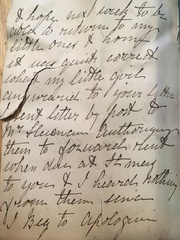 I hope next week to be
able to return to my
little ones & home
it was quite correct
what my little girls
answered to your letter
sent letter by post to
Mr authorising
them to forward rent
when due at
to you & I heard nothing
from them since
I Beg to apologise